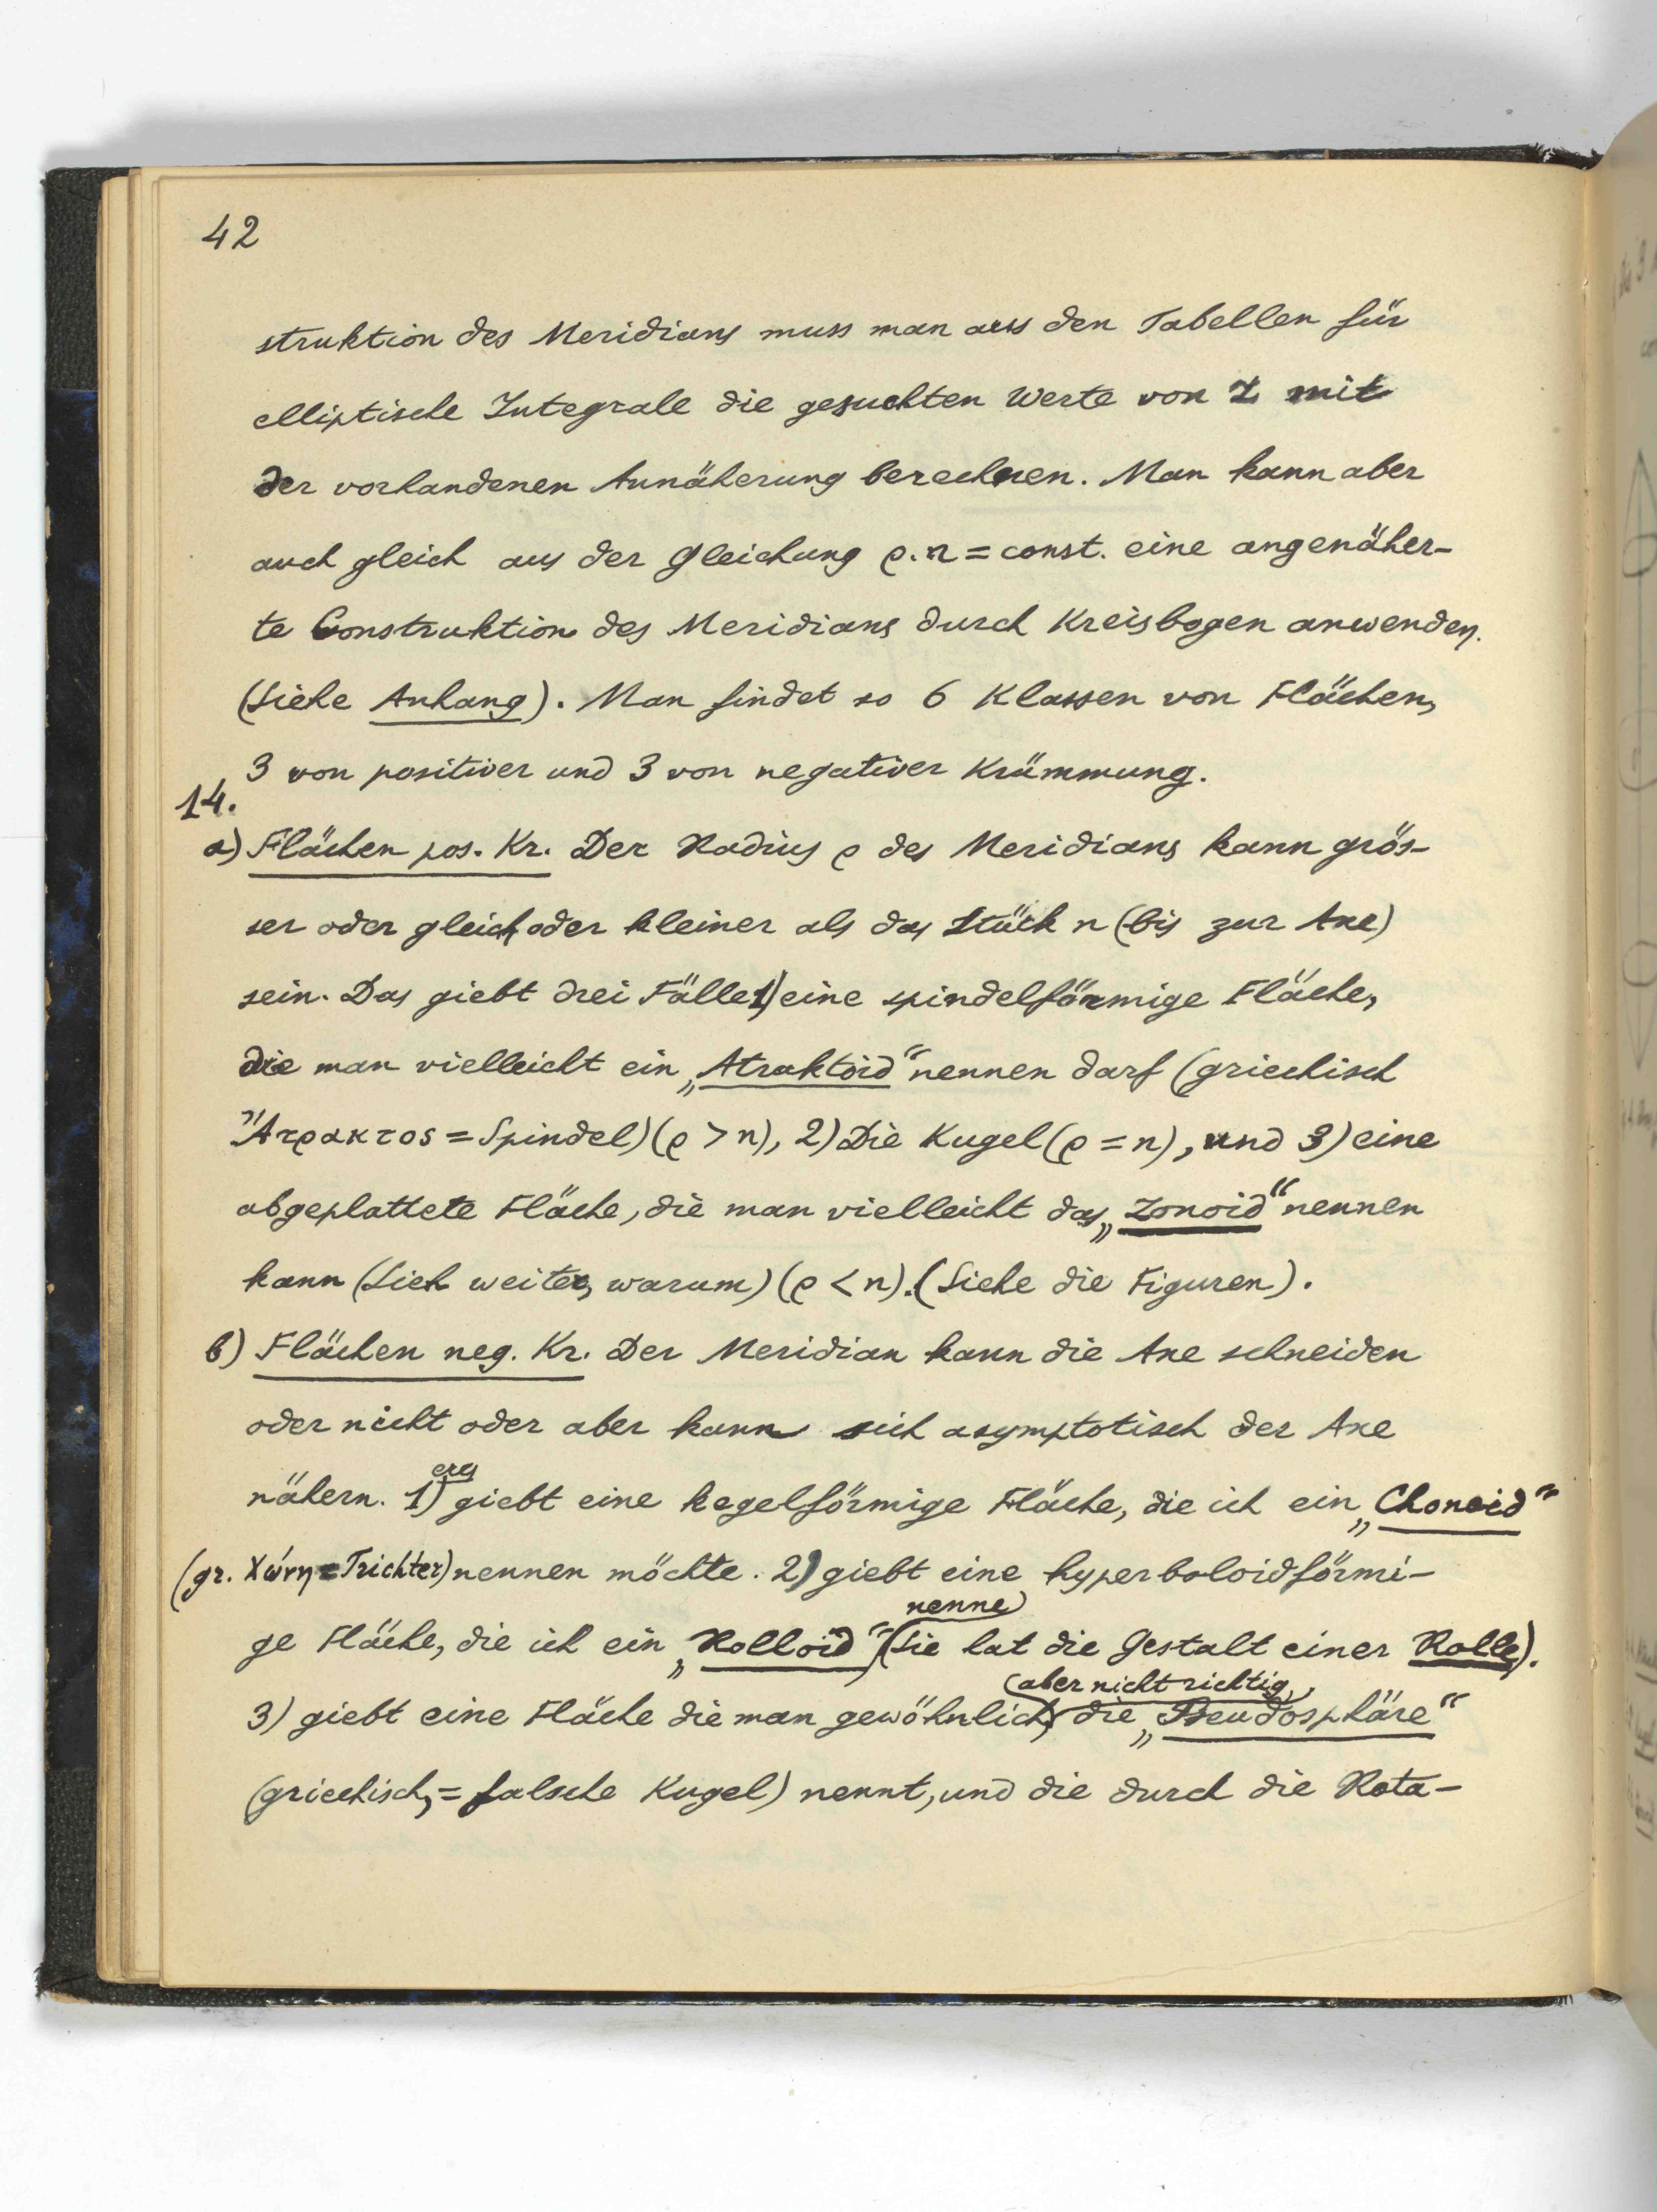 42
struktion des Meridians muss man aus den Tabellen für
elliptische Integrale die gesuchten Werte von z mit
der vorhandenen Annäherung berechnen. Man kann aber
auch gleich aus der Gleichung ρ.n = const. eine angenäher-
te Construktion des Meridians durch Kreisbogen anwenden.
(Siehe Anhang). Man findet so 6 Klassen von Flächen,
3 von positiver und 3 von negativer Krümmung.
14.
a) Flächen pos. Kr. Der Radius ρ des Meridians kann grös-
ser oder gleich oder kleiner als das Stück n (bis zur Axe)
sein. Das giebt drei Fälle 1) eine spindelförmige Fläche,
die man vielleicht ein „Atraktoid“ nennen darf (griechisch
Ἄτρακτος = Spindel) (ρ > n), 2) Die Kugel (ρ = n), und 3) eine
abgeplattete Fläche, die man vielleicht das „Zonoid“ nennen
kann (Sieh weiter, warum) (ρ < n). (Siehe die Figuren).
b) Flächen neg. Kr. Der Meridian kann die Axe schneiden
oder nicht oder aber kann sich asymptotisch der Axe
nähern. 1) er giebt eine kegelförmige Fläche, die ich ein „Chonoid“
(gr. Χώνη = Trichter) nennen möchte. 2) giebt eine hyperboloidförmi-
ge Fläche, die ich ein „Rolloid“ nenne (Sie hat die Gestalt einer Rolle).
3) giebt eine Fläche die man gewöhnlich, aber nicht richtig, die „Pseudosphäre“
(griechisch, = falsche Kugel) nennt, und die durch die Rota-